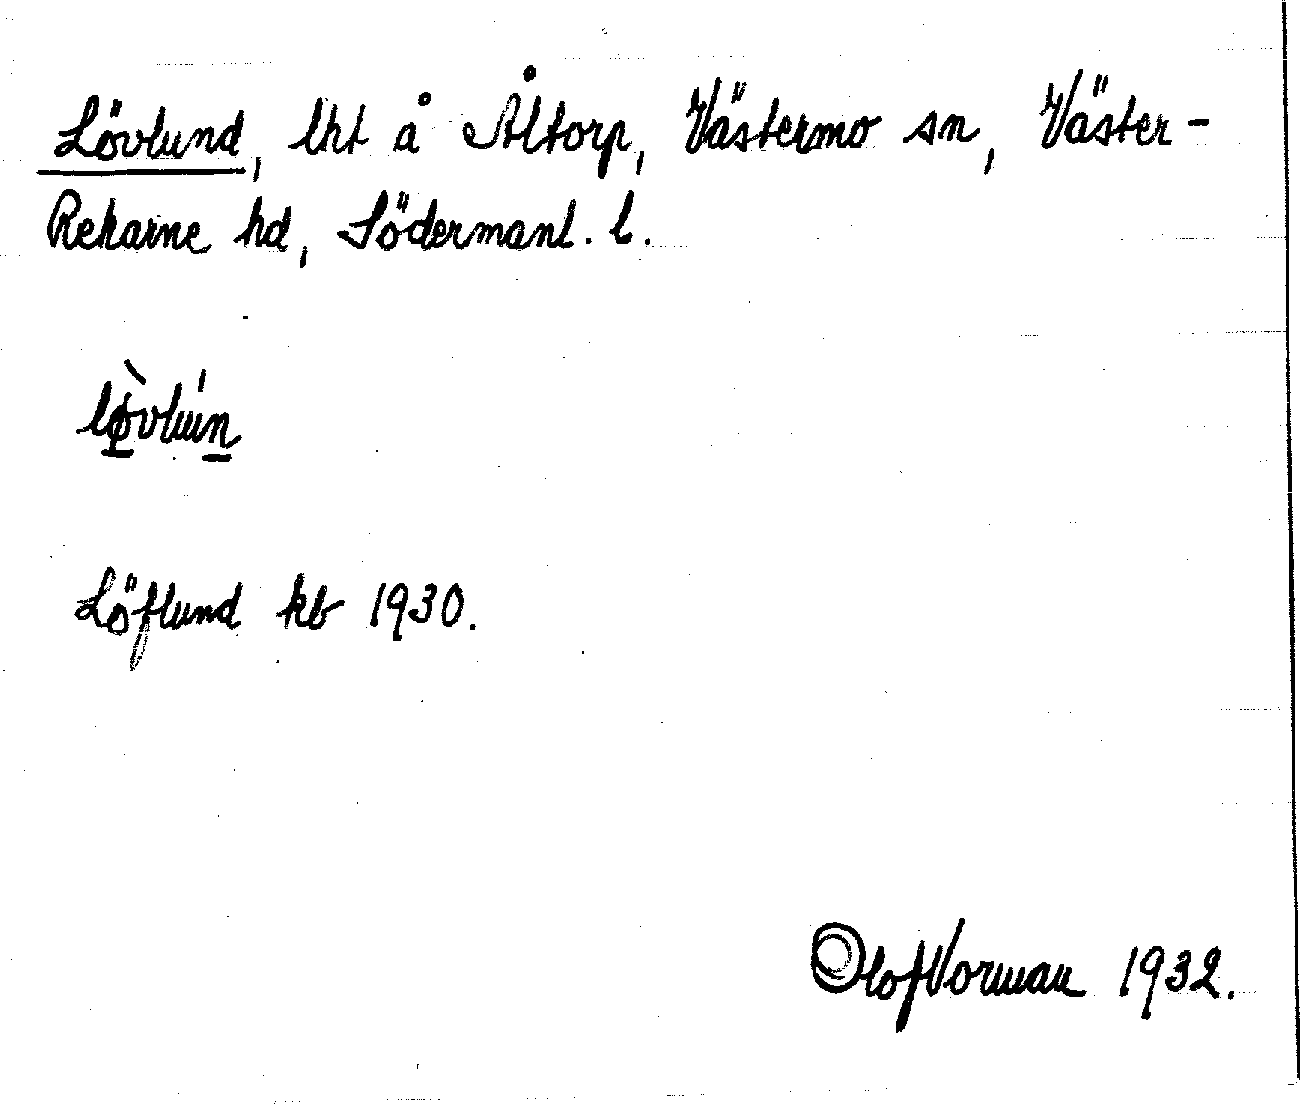 Lövlund, lht å Åltorp, Västermo sn, Väster-
Rekarne hd, Södermanl. l.
lø̀vlún
Löflund kb 1930.
Olof Vorman 1932.